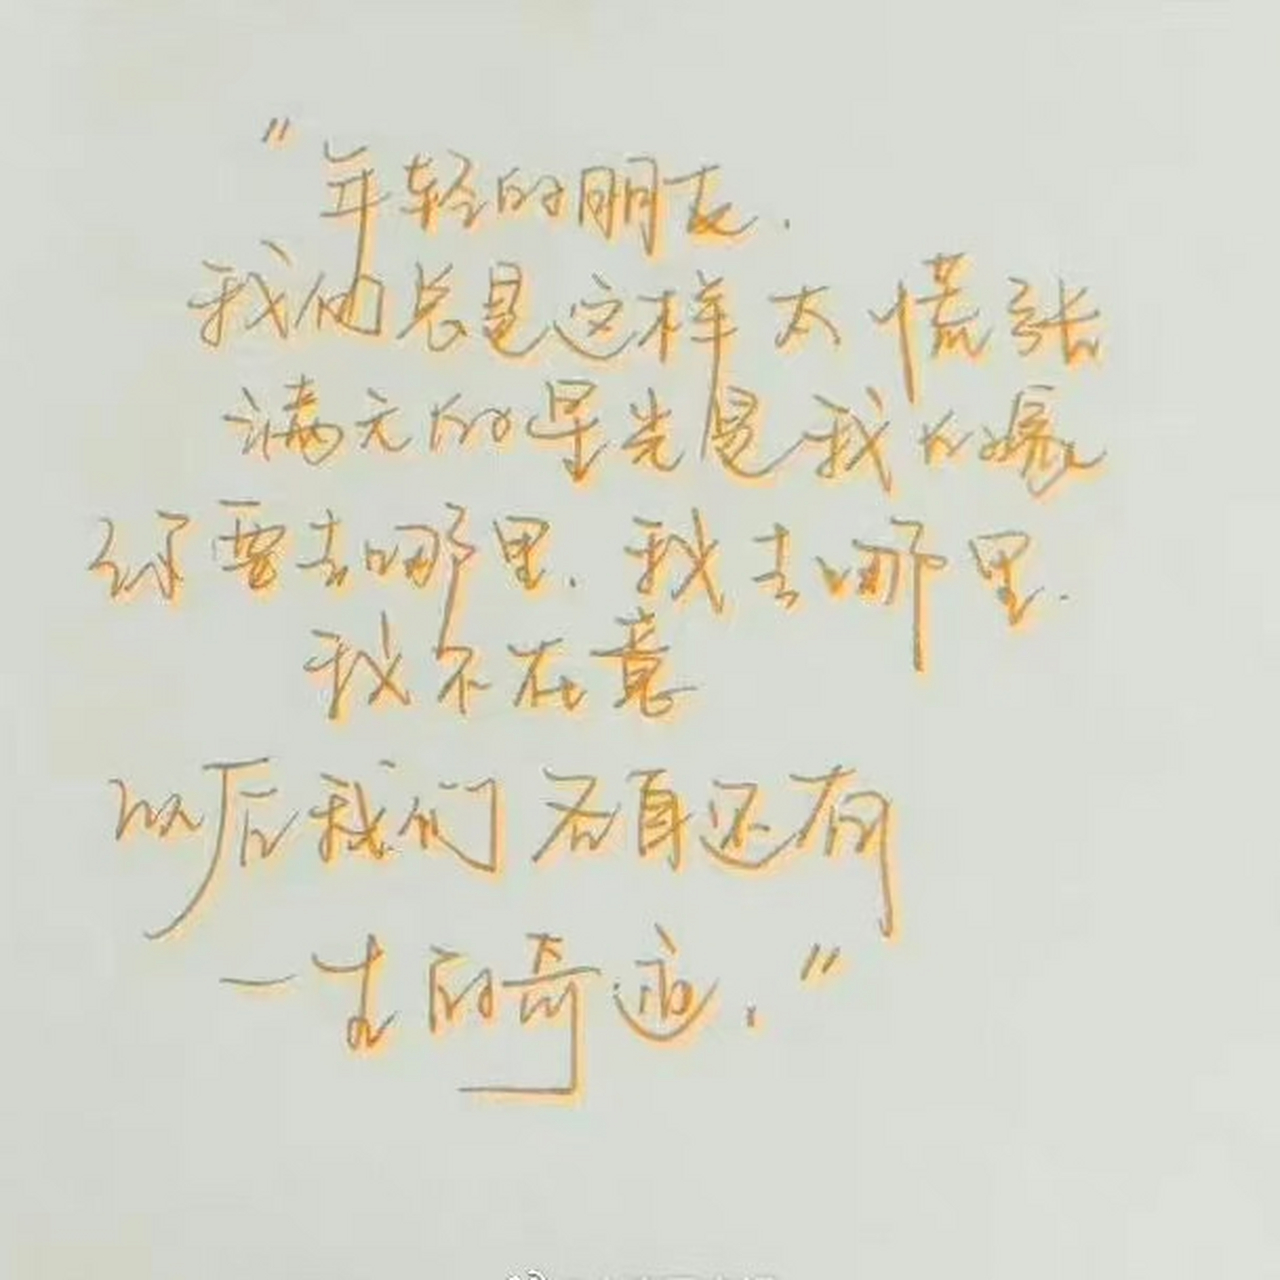 “年轻的朋友.
我们总是这样太慌张
满天的星光是我
你要去哪里. 我去哪里.
我不在意
以后我们各自还有
一生的奇迹.”